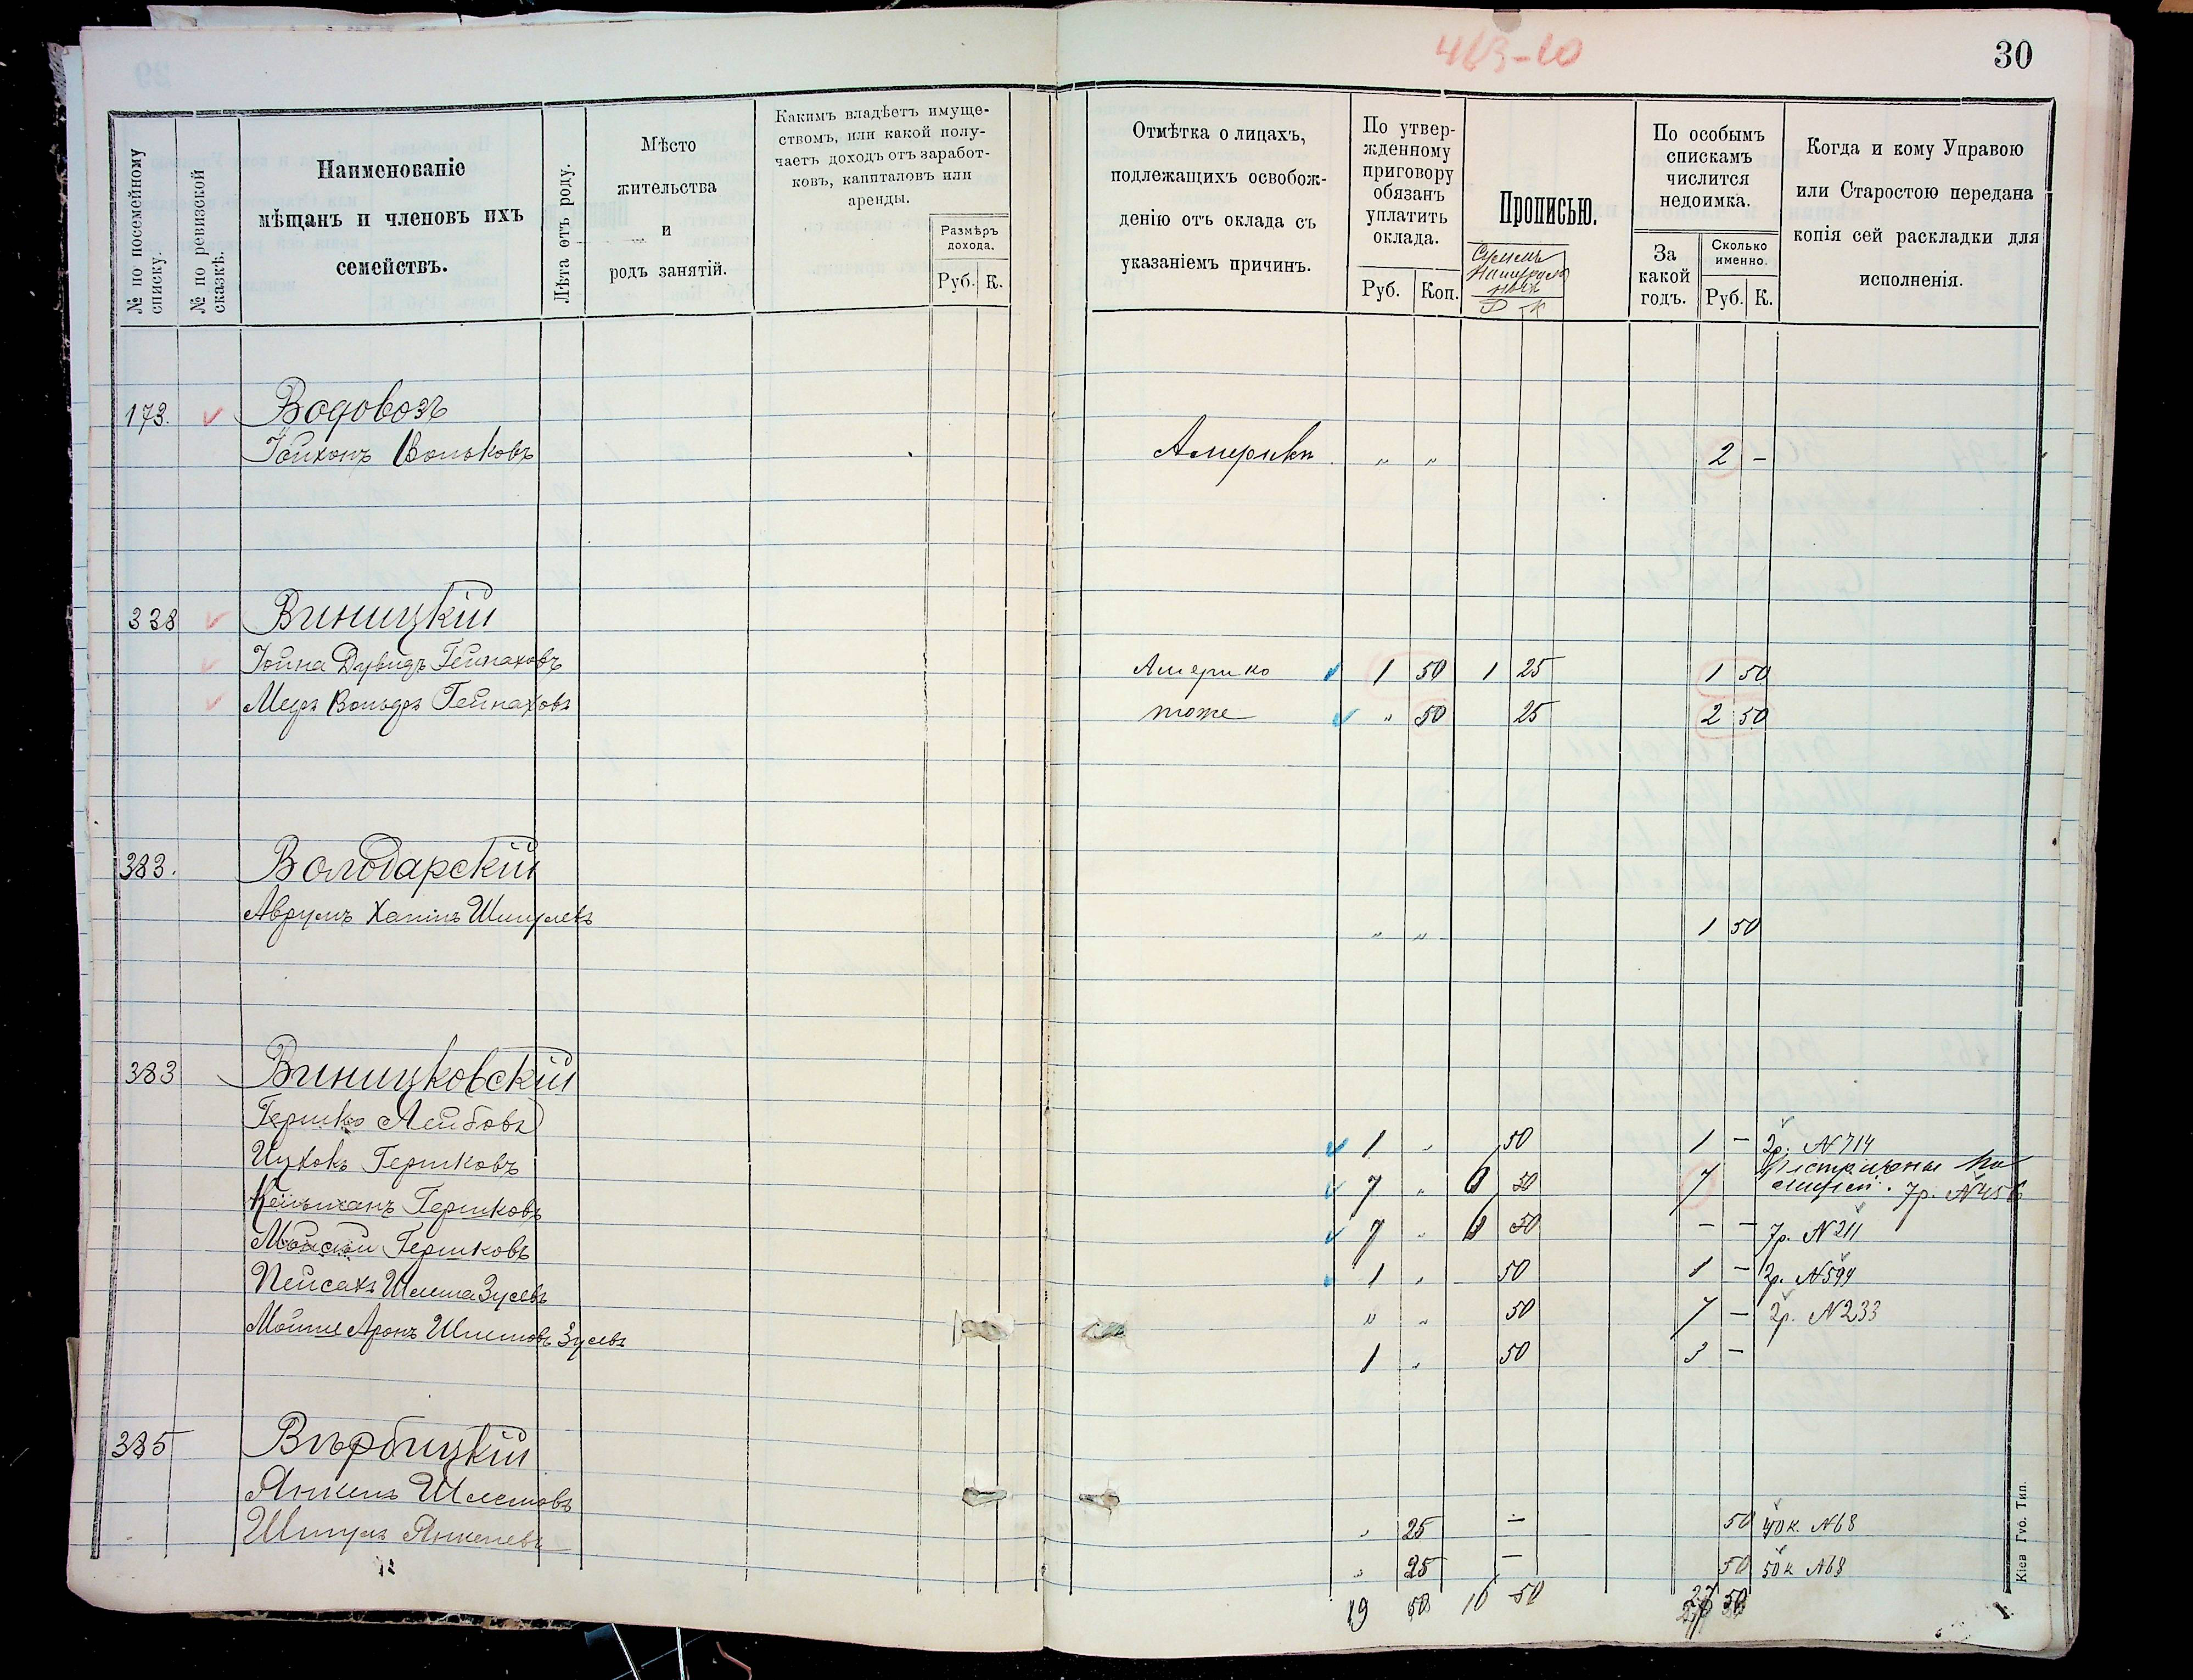 463-10
30
№ по посемейному списку.
№ по ревизской сказкѣ.
Наименованіе
мѣщанъ и членовъ ихъ
семействъ.
Лѣта отъ роду.
Мѣсто
жительства
и
родъ занятій.
Какимъ владѣетъ имуще-
ствомъ, или какой полу-
чаетъ доходъ отъ заработ-
ковъ, капиталовъ или
аренды.
Размѣръ
дохода.
Руб. К.
Отмѣтка о лицахъ,
подлежащихъ освобож-
денію отъ оклада съ
указаніемъ причинъ.
По утвер-
жденному
приговору
обязанъ
уплатить
оклада.
Руб. Коп.
Прописью.
Р К
По особымъ
спискамъ
числится
недоимка.
За
какой
годъ.
Сколько
именно.
Руб. К.
Когда и кому Управою
или Старостою передана
копія сей раскладки для
исполненія.
173. Водовозъ
Іойхонъ Вольковъ Америка " " 2 -
338 Виницкій
Іойна Дувидъ Гейнаховъ Америко 1 50 1 25 1 50
Мееръ Вольфъ Гейнаховъ тоже " 50 25 2 50
383. Володарскій
Аврумъ Хаимъ Шмулевъ " " 1 50
383 Виницковскій
Гершко Лейбовъ 1 " 50 1 - 2р. №714
Ицхокъ Гершковъ 7 " 6 50 7 7р. №456
Кельманъ Гершковъ 7 " 6 50 - - 7р. №211
Мойсей Гершковъ 1 " 50 1 - 2р. №594
Пейсахъ Шлема Зусевъ " " 50 7 - 2р. №233
Мошко Аронъ Шлемовъ Зусевъ 1 " 50 3 -
385 Вербицкій
Янкель Шлемовъ " 25 - 50 40к. №68
Шмуль Янкелевъ " 25 - 50 50к №68
19 50 16 50 27 50
Кіев. Губ. Тип.